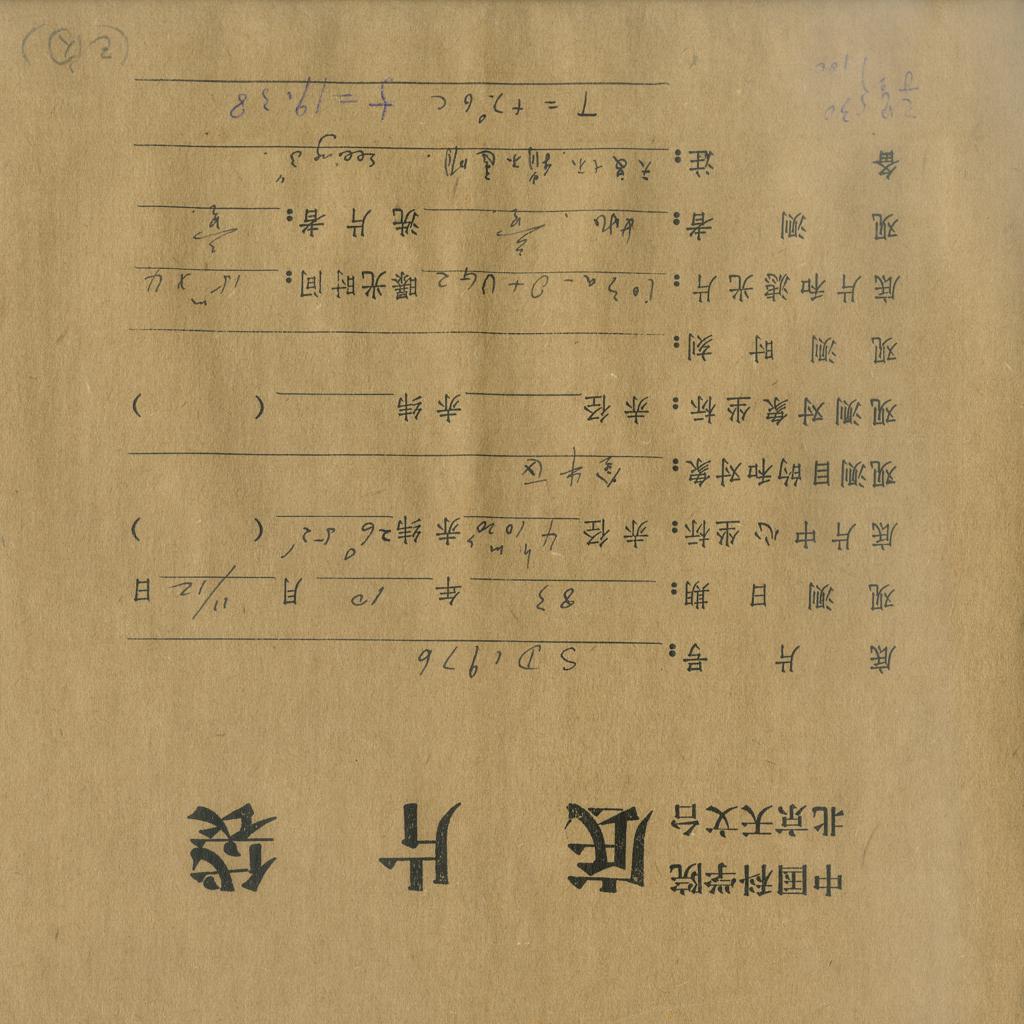 中国科学院
北京天文台
底片袋
底片号: SD1976
观测日期: 83 年 10 月 11/12 日
底片中心坐标: 赤径 4h 10m 20s 赤纬 26° 52′ ( )
观测目的和对象: 金牛区
观测对象坐标: 赤径 赤纬 ( )
观测时刻:
底片和滤光片: 103a-O+UG2 曝光时间: 15m x 4
观测者: 洗片者:
备注: seeing 3″.
T = +7.°6 C f = 19.38